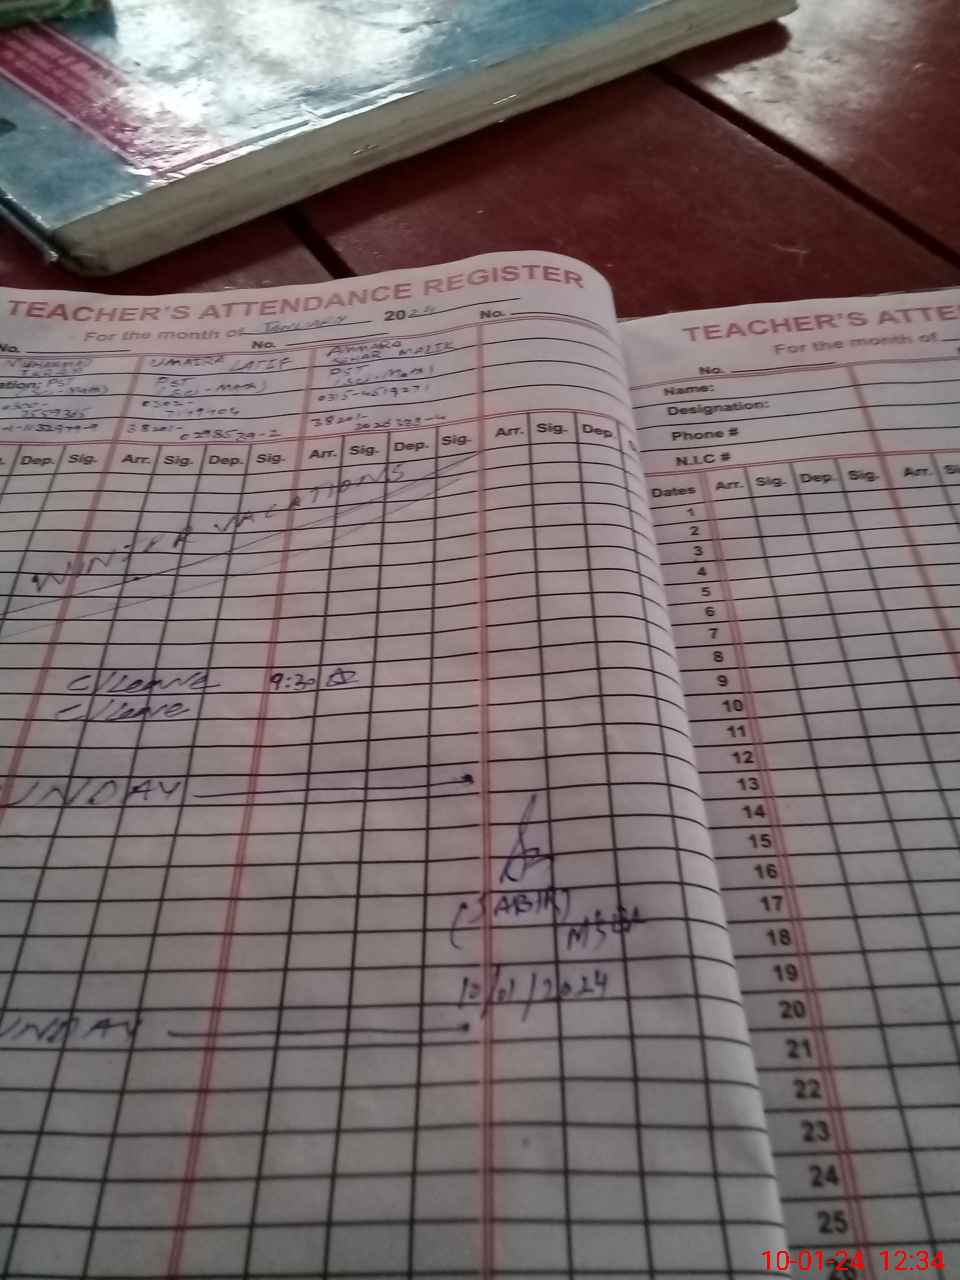 TEACHER'S ATTENDANCE REGISTER
For the month of January 2024
No. No. No.
UMAIRA LATIF
PST PST
(Sci-Math) (Sci-Math)
0315-4519271
38201-
Dep. Sig. Arr. Sig. Dep. Sig. Arr. Sig. Dep. Sig. Arr. Sig. Dep.
WINTER VACATIONS
C/Leave 9:30
C/Leave
UNDAY
(SABIR)
10/01/2024
UNDAY
TEACHER'S ATTE
For the month of
No.
Name:
Designation:
Phone #
N.I.C #
Dates Arr. Sig. Dep. Sig. Arr. Si
1
2
3
4
5
6
7
8
9
10
11
12
13
14
15
16
17
18
19
20
21
22
23
24
25
10-01-24 12:34